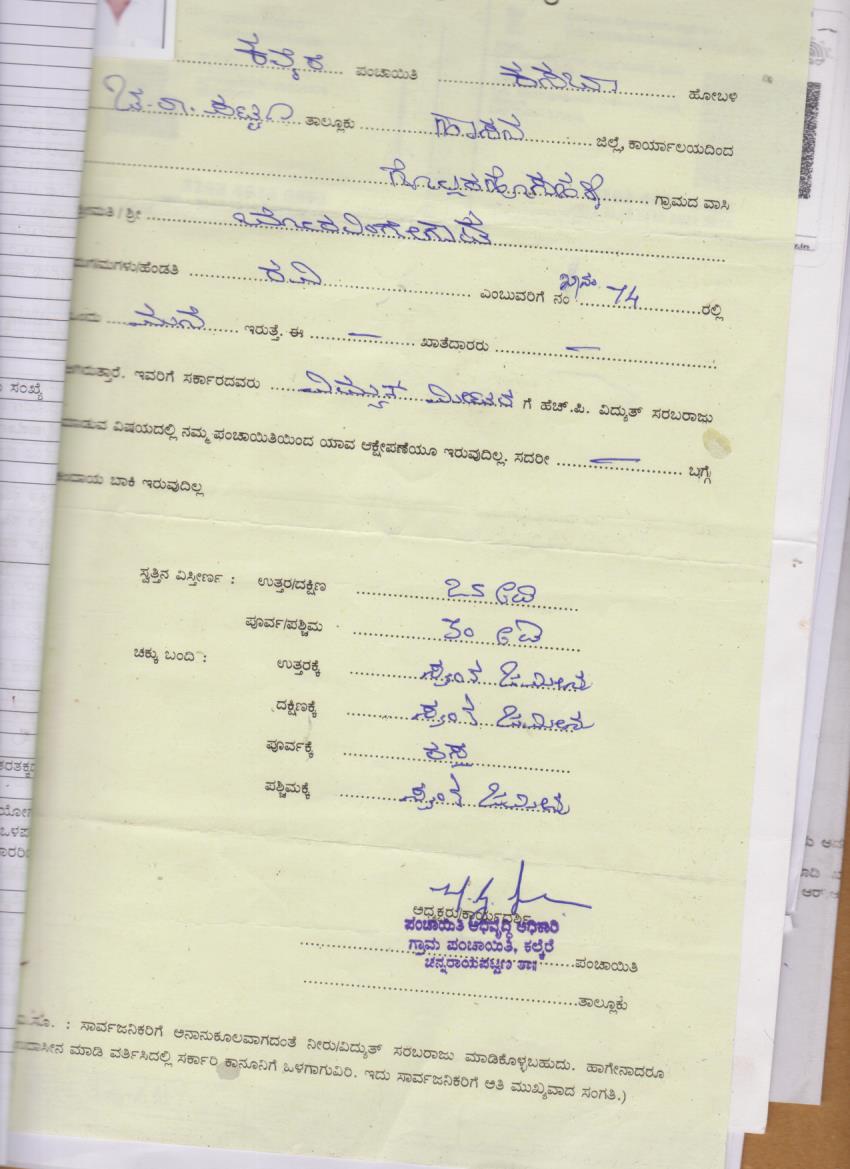 ಪಂಚಾಯಿತಿ ಕಸಬಾ ಹೋಬಳಿ
ತಾಲ್ಲೂಕು ಹಾಸನ ಜಿಲ್ಲೆ, ಕಾರ್ಯಾಲಯದಿಂದ
ಗೊಲ್ಲರಹೊಸಹಳ್ಳಿ ಗ್ರಾಮದ ವಾಸಿ
ಶ್ರೀಮತಿ / ಶ್ರೀ
ಮಗ/ಮಗಳು/ಹೆಂಡತಿ ರವಿ ಎಂಬುವರಿಗೆ ನಂ 74 ರಲ್ಲಿ
ಒಂದು ಮನೆ ಇರುತ್ತೆ. ಈ — ಖಾತೆದಾರರು —
ಆಗಿರುತ್ತಾರೆ. ಇವರಿಗೆ ಸರ್ಕಾರದವರು ವಿದ್ಯುತ್ ಗೆ ಹೆಚ್.ಪಿ. ವಿದ್ಯುತ್ ಸರಬರಾಜು
ಮಾಡುವ ವಿಷಯದಲ್ಲಿ ನಮ್ಮ ಪಂಚಾಯಿತಿಯಿಂದ ಯಾವ ಆಕ್ಷೇಪಣೆಯೂ ಇರುವುದಿಲ್ಲ. ಸದರೀ — ಬಗ್ಗೆ
ಕಂದಾಯ ಬಾಕಿ ಇರುವುದಿಲ್ಲ
ಸ್ವತ್ತಿನ ವಿಸ್ತೀರ್ಣ : ಉತ್ತರ/ದಕ್ಷಿಣ ೨೫ ಅಡಿ
ಪೂರ್ವ/ಪಶ್ಚಿಮ ೩೦ ಅಡಿ
ಚಕ್ಕು ಬಂದಿ : ಉತ್ತರಕ್ಕೆ ಸ್ವಂತ ಜಮೀನು
ದಕ್ಷಿಣಕ್ಕೆ ಸ್ವಂತ ಜಮೀನು
ಪೂರ್ವಕ್ಕೆ ರಸ್ತೆ
ಪಶ್ಚಿಮಕ್ಕೆ ಸ್ವಂತ ಜಮೀನು
ಅಧ್ಯಕ್ಷರು/ಕಾರ್ಯದರ್ಶಿ
ಪಂಚಾಯಿತಿ ಅಭಿವೃದ್ಧಿ ಅಧಿಕಾರಿ
ಗ್ರಾಮ ಪಂಚಾಯಿತಿ, ಕಲ್ಕೆರೆ
ಚನ್ನರಾಯಪಟ್ಟಣ ತಾ॥
ಪಂಚಾಯಿತಿ
ತಾಲ್ಲೂಕು
ವಿ.ಸೂ. : ಸಾರ್ವಜನಿಕರಿಗೆ ಅನಾನುಕೂಲವಾಗದಂತೆ ನೀರು/ವಿದ್ಯುತ್ ಸರಬರಾಜು ಮಾಡಿಕೊಳ್ಳಬಹುದು. ಹಾಗೇನಾದರೂ
ಉದಾಸೀನ ಮಾಡಿ ವರ್ತಿಸಿದಲ್ಲಿ ಸರ್ಕಾರಿ ಕಾನೂನಿಗೆ ಒಳಗಾಗುವಿರಿ. ಇದು ಸಾರ್ವಜನಿಕರಿಗೆ ಅತಿ ಮುಖ್ಯವಾದ ಸಂಗತಿ.)
ಸಂಖ್ಯೆ